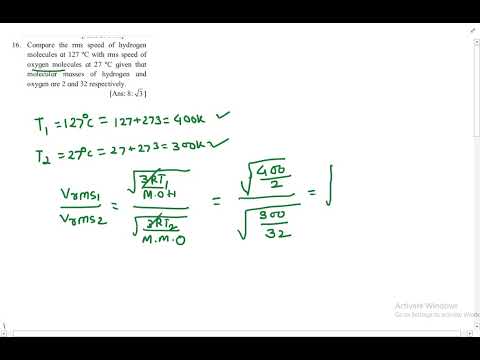 16. Compare the rms speed of hydrogen
molecules at 127 ºC with rms speed of
oxygen molecules at 27 ºC given that
molecular masses of hydrogen and
oxygen are 2 and 32 respectively.
[Ans: 8: √3 ]
T₁ = 127°C = 127+273 = 400K ✓
T₂ = 27°C = 27+273 = 300K ✓
Vrms₁ / Vrms₂ = √(3RT₁ / M.O.H) / √(3RT₂ / M.M.O) = √(400 / 2) / √(300 / 32) = √
Activate Windows
Go to Settings to activate Windows